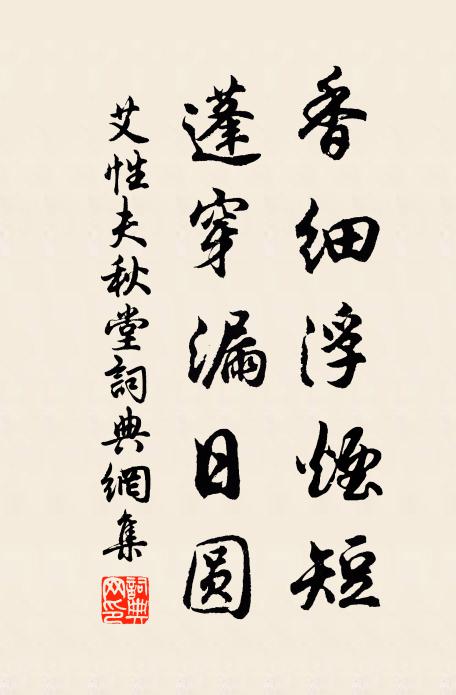 香细浮煙短
蓬穿漏日圆
艾性夫秋堂詞典網集
詞典网印